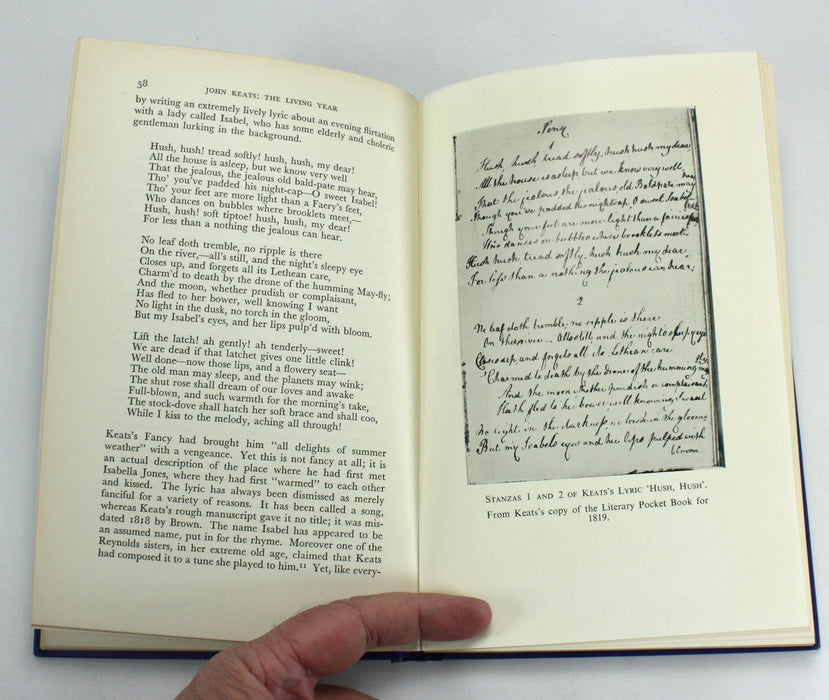 58
JOHN KEATS: THE LIVING YEAR
by writing an extremely lively lyric about an evening flirtation
with a lady called Isabel, who has some elderly and choleric
gentleman lurking in the background.
Hush, hush! tread softly! hush, hush, my dear!
All the house is asleep, but we know very well
That the jealous, the jealous old bald-pate may hear,
Tho' you've padded his night-cap—O sweet Isabel!
Tho' your feet are more light than a Faery's feet,
Who dances on bubbles where brooklets meet,—
Hush, hush! soft tiptoe! hush, hush, my dear!
For less than a nothing the jealous can hear.
No leaf doth tremble, no ripple is there
On the river,—all's still, and the night's sleepy eye
Closes up, and forgets all its Lethean care,
Charm'd to death by the drone of the humming May-fly;
And the moon, whether prudish or complaisant,
Has fled to her bower, well knowing I want
No light in the dusk, no torch in the gloom,
But my Isabel's eyes, and her lips pulp'd with bloom.
Lift the latch! ah gently! ah tenderly—sweet!
We are dead if that latchet gives one little clink!
Well done—now those lips, and a flowery seat—
The old man may sleep, and the planets may wink;
The shut rose shall dream of our loves and awake
Full-blown, and such warmth for the morning's take,
The stock-dove shall hatch her soft brace and shall coo,
While I kiss to the melody, aching all through!
Keats's Fancy had brought him "all delights of summer
weather" with a vengeance. Yet this is not fancy at all; it is
an actual description of the place where he had first met
Isabella Jones, where they had first "warmed" to each other
and kissed. The lyric has always been dismissed as merely
fanciful for a variety of reasons. It has been called a song,
whereas Keats's rough manuscript gave it no title; it was mis-
dated 1818 by Brown. The name Isabel has appeared to be
an assumed name, put in for the rhyme. Moreover one of the
Reynolds sisters, in her extreme old age, claimed that Keats
had composed it to a tune she played to him.¹¹ Yet, like every-
Song
1
Hush hush tread softly, hush hush my dear,
All the house is asleep but we know very well,
That the jealous the jealous old Baldpate may
Though you've padded his nightcap, O sweet Isabel
Though your feet are more light than a faeries
Who dances on bubbles where brooklets meet
Hush hush tread softly, hush hush my dear,
For less than a nothing the jealous can hear:
2
No leaf doth tremble, no ripple is there
On the river — All still and the night's sleepy eye
Closes up, and forgets all its Lethean care
Charmed to death by the drone of the humming may
fly
And the moon whether prudish or complaisant,
Hath fled to her bower well knowing I want
No light in the darkness, no torch in the gloom
But my Isabels eyes and her lips pulped with
bloom.
STANZAS 1 AND 2 OF KEATS'S LYRIC 'HUSH, HUSH'.
From Keats's copy of the Literary Pocket Book for
1819.